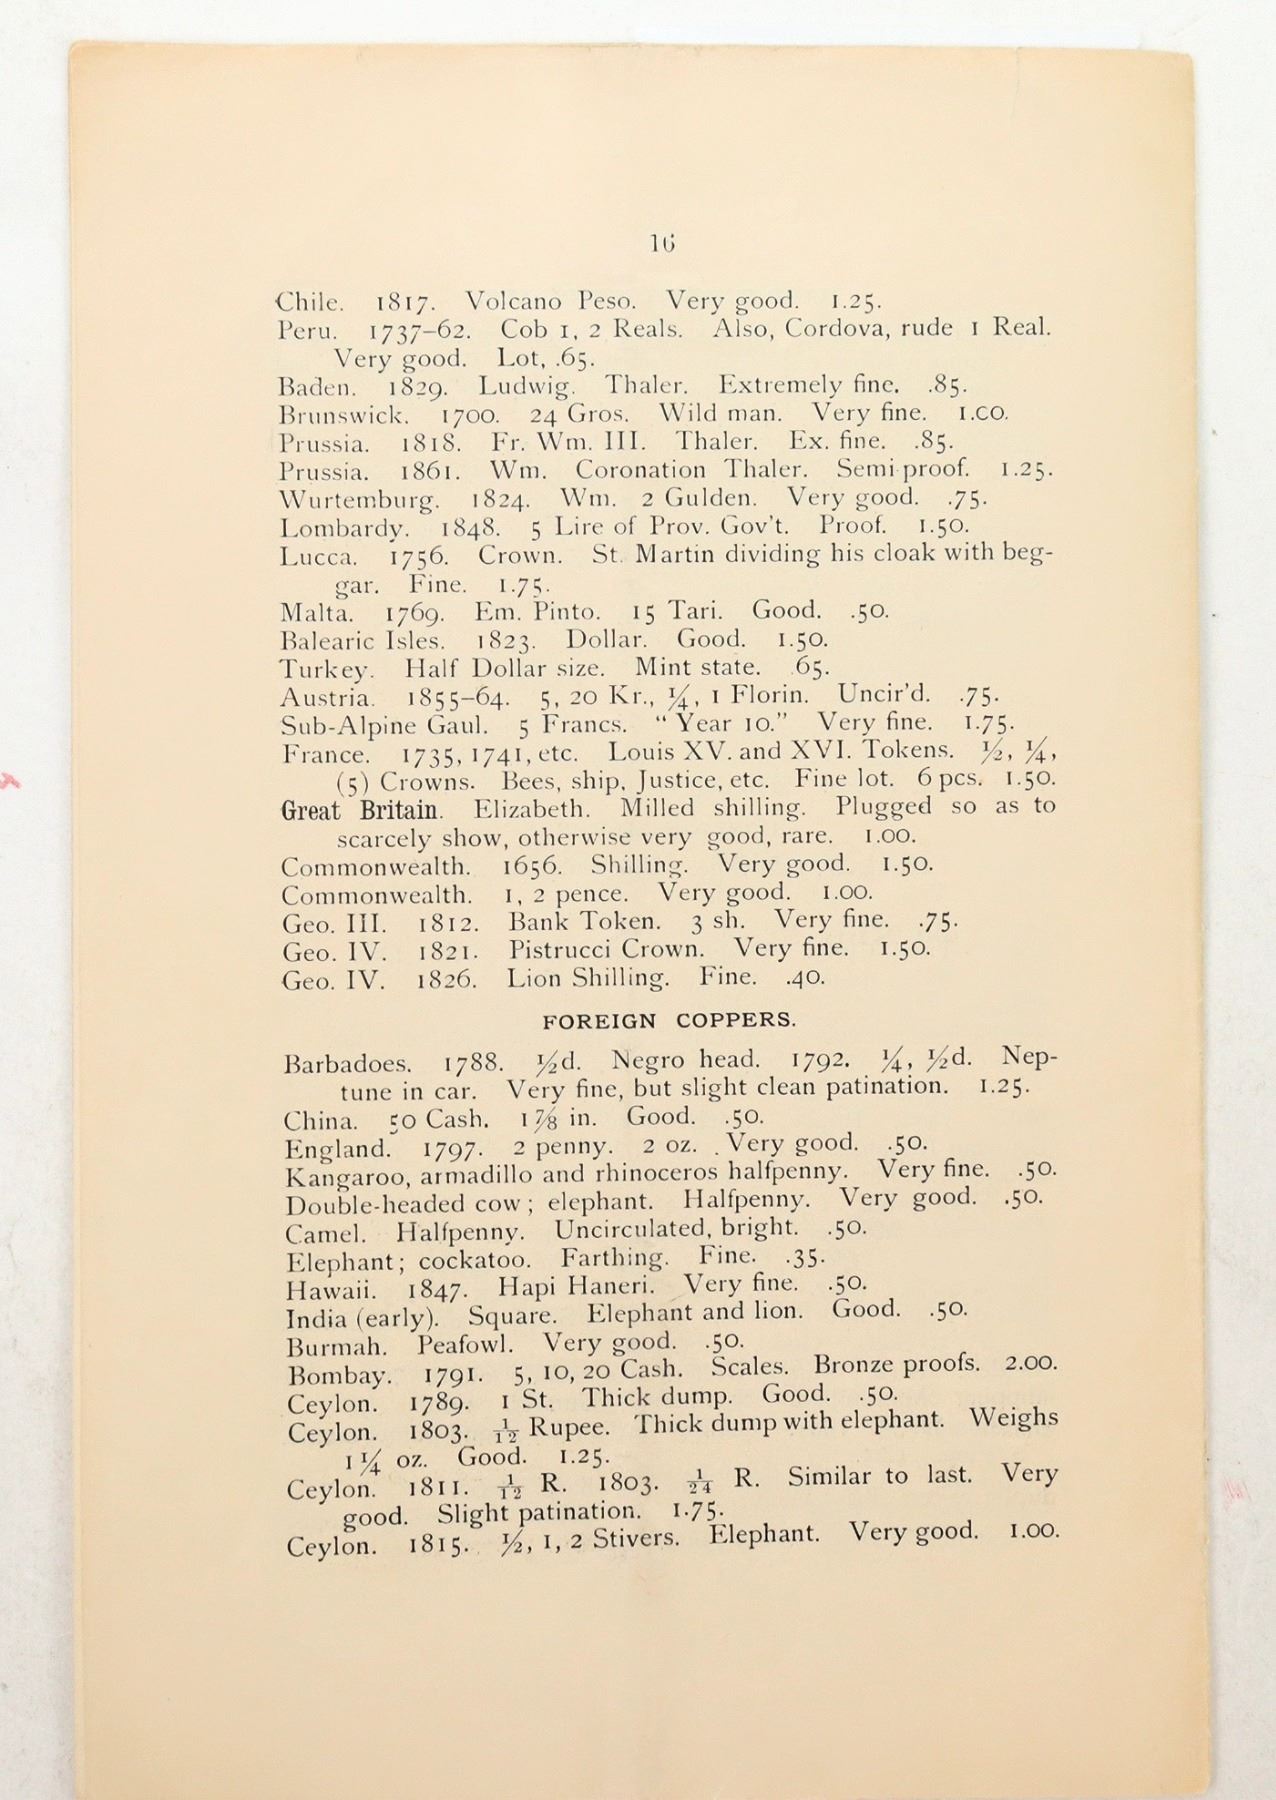 16
Chile. 1817. Volcano Peso. Very good. 1.25.
Peru. 1737–62. Cob 1, 2 Reals. Also, Cordova, rude 1 Real.
Very good. Lot, .65.
Baden. 1829. Ludwig. Thaler. Extremely fine. .85.
Brunswick. 1700. 24 Gros. Wild man. Very fine. 1.00.
Prussia. 1818. Fr. Wm. III. Thaler. Ex. fine. .85.
Prussia. 1861. Wm. Coronation Thaler. Semi-proof. 1.25.
Wurtemburg. 1824. Wm. 2 Gulden. Very good. .75.
Lombardy. 1848. 5 Lire of Prov. Gov't. Proof. 1.50.
Lucca. 1756. Crown. St. Martin dividing his cloak with beg-
gar. Fine. 1.75.
Malta. 1769. Em. Pinto. 15 Tari. Good. .50.
Balearic Isles. 1823. Dollar. Good. 1.50.
Turkey. Half Dollar size. Mint state. .65.
Austria. 1855–64. 5, 20 Kr., ¼, 1 Florin. Uncir'd. .75.
Sub-Alpine Gaul. 5 Francs. “Year 10.” Very fine. 1.75.
France. 1735, 1741, etc. Louis XV. and XVI. Tokens. ½, ¼,
(5) Crowns. Bees, ship, Justice, etc. Fine lot. 6 pcs. 1.50.
Great Britain. Elizabeth. Milled shilling. Plugged so as to
scarcely show, otherwise very good, rare. 1.00.
Commonwealth. 1656. Shilling. Very good. 1.50.
Commonwealth. 1, 2 pence. Very good. 1.00.
Geo. III. 1812. Bank Token. 3 sh. Very fine. .75.
Geo. IV. 1821. Pistrucci Crown. Very fine. 1.50.
Geo. IV. 1826. Lion Shilling. Fine. .40.
FOREIGN COPPERS.
Barbadoes. 1788. ½d. Negro head. 1792. ¼, ½d. Nep-
tune in car. Very fine, but slight clean patination. 1.25.
China. 50 Cash. 1⅞ in. Good. .50.
England. 1797. 2 penny. 2 oz. Very good. .50.
Kangaroo, armadillo and rhinoceros halfpenny. Very fine. .50.
Double-headed cow; elephant. Halfpenny. Very good. .50.
Camel. Halfpenny. Uncirculated, bright. .50.
Elephant; cockatoo. Farthing. Fine. .35.
Hawaii. 1847. Hapi Haneri. Very fine. .50.
India (early). Square. Elephant and lion. Good. .50.
Burmah. Peafowl. Very good. .50.
Bombay. 1791. 5, 10, 20 Cash. Scales. Bronze proofs. 2.00.
Ceylon. 1789. 1 St. Thick dump. Good. .50.
Ceylon. 1803. 1/12 Rupee. Thick dump with elephant. Weighs
1¼ oz. Good. 1.25.
Ceylon. 1811. 1/12 R. 1803. 1/24 R. Similar to last. Very
good. Slight patination. 1.75.
Ceylon. 1815. ½, 1, 2 Stivers. Elephant. Very good. 1.00.